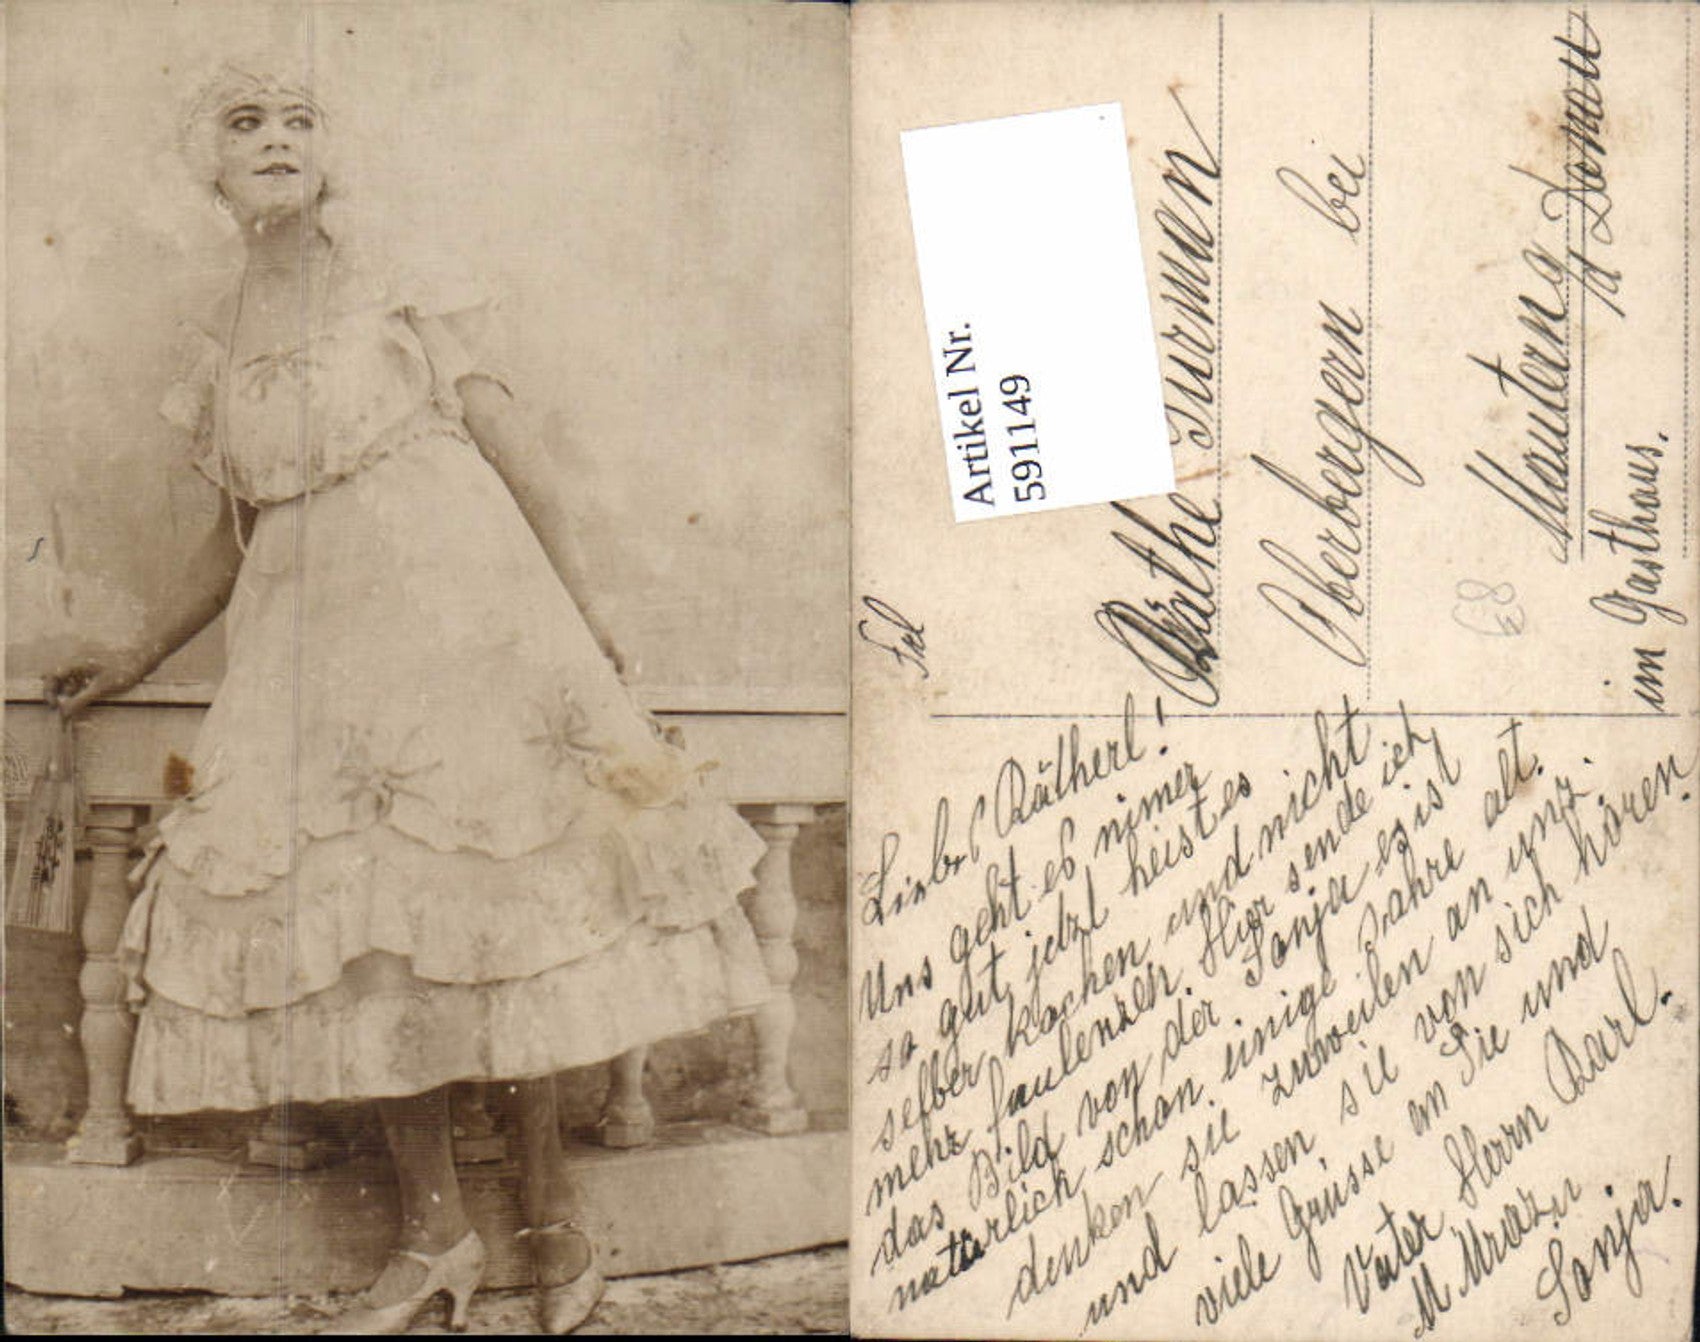 Artikel Nr.
591149
Frl
Käthe Turman
Oberbergern bei
Mautern a
d Donau
im Gasthaus.
Liebes Kätherl!
Uns geht es nimer
so gut, jetzt heist es
selber kochen und nicht
mehr faulenzen. Hier sende ich
das Bild von der Sonja es ist
natürlich schon einige Jahre alt.
denken sie zuweilen an unz.
und lassen sie von sich hören.
viele Grüsse an Sie und
Vater Herrn Karl.
M. Mrazu
Sonja.